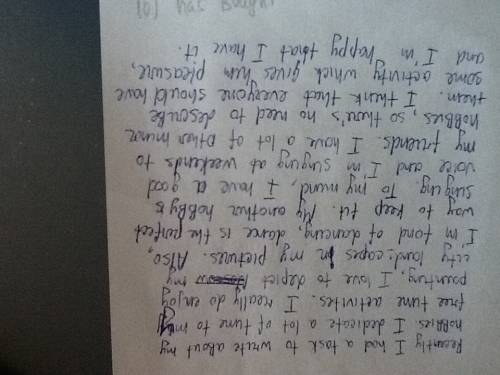 Recently I had a task to write about my
hobbies. I dedicate a lot of time to my
free time activities. I really do enjoy
painting, I love to depict my
city landscapes in my pictures. Also,
I'm fond of dancing, dance is the perfect
way to keep fit. My another hobby is
singing. To my mind, I have a good
voice and I'm singing at weekends to
my friends. I have a lot of other minor
hobbies, so there's no need to describe
them. I think that everyone should have
some activity which gives him pleasure,
and I'm happy that I have it.
10) has bought